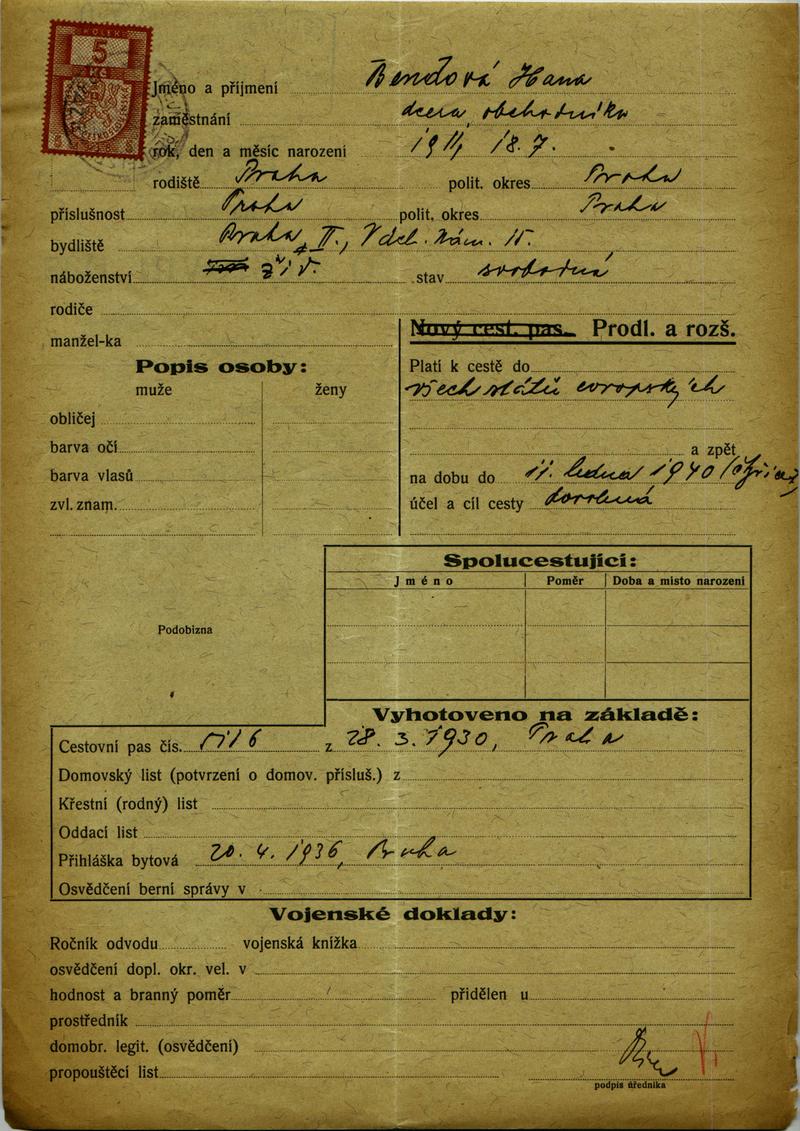 KOLEK
5
Kč
Jméno a příjmení Bendová Hana
zaměstnání dcera obchodníka
rok, den a měsíc narození 1911, 18.7.
rodiště Praha polit. okres Praha
příslušnost Praha polit. okres Praha
bydliště Praha II., Vdel. nám. 15.
náboženství žid. stav svobodná
rodiče
manžel-ka
Nový cest. pas. Prodl. a rozš.
Popis osoby:
muže ženy
obličej
barva očí
barva vlasů
zvl. znam.
Platí k cestě do
všech států evropských
a zpět
na dobu do 11. ledna 1940
účel a cíl cesty dovolená
Spolucestující:
Jméno Poměr Doba a místo narození
Podobizna
Vyhotoveno na základě:
Cestovní pas čís. z 28. 3. 1930, Praha
Domovský list (potvrzení o domov. přísluš.) z
Křestní (rodný) list
Oddací list
Přihláška bytová 20. 4. 1936, Praha
Osvědčení berní správy v
Vojenské doklady:
Ročník odvodu vojenská knížka
osvědčení dopl. okr. vel. v
hodnost a branný poměr přidělen u
prostředník
domobr. legit. (osvědčení)
propouštěcí list
podpis úředníka